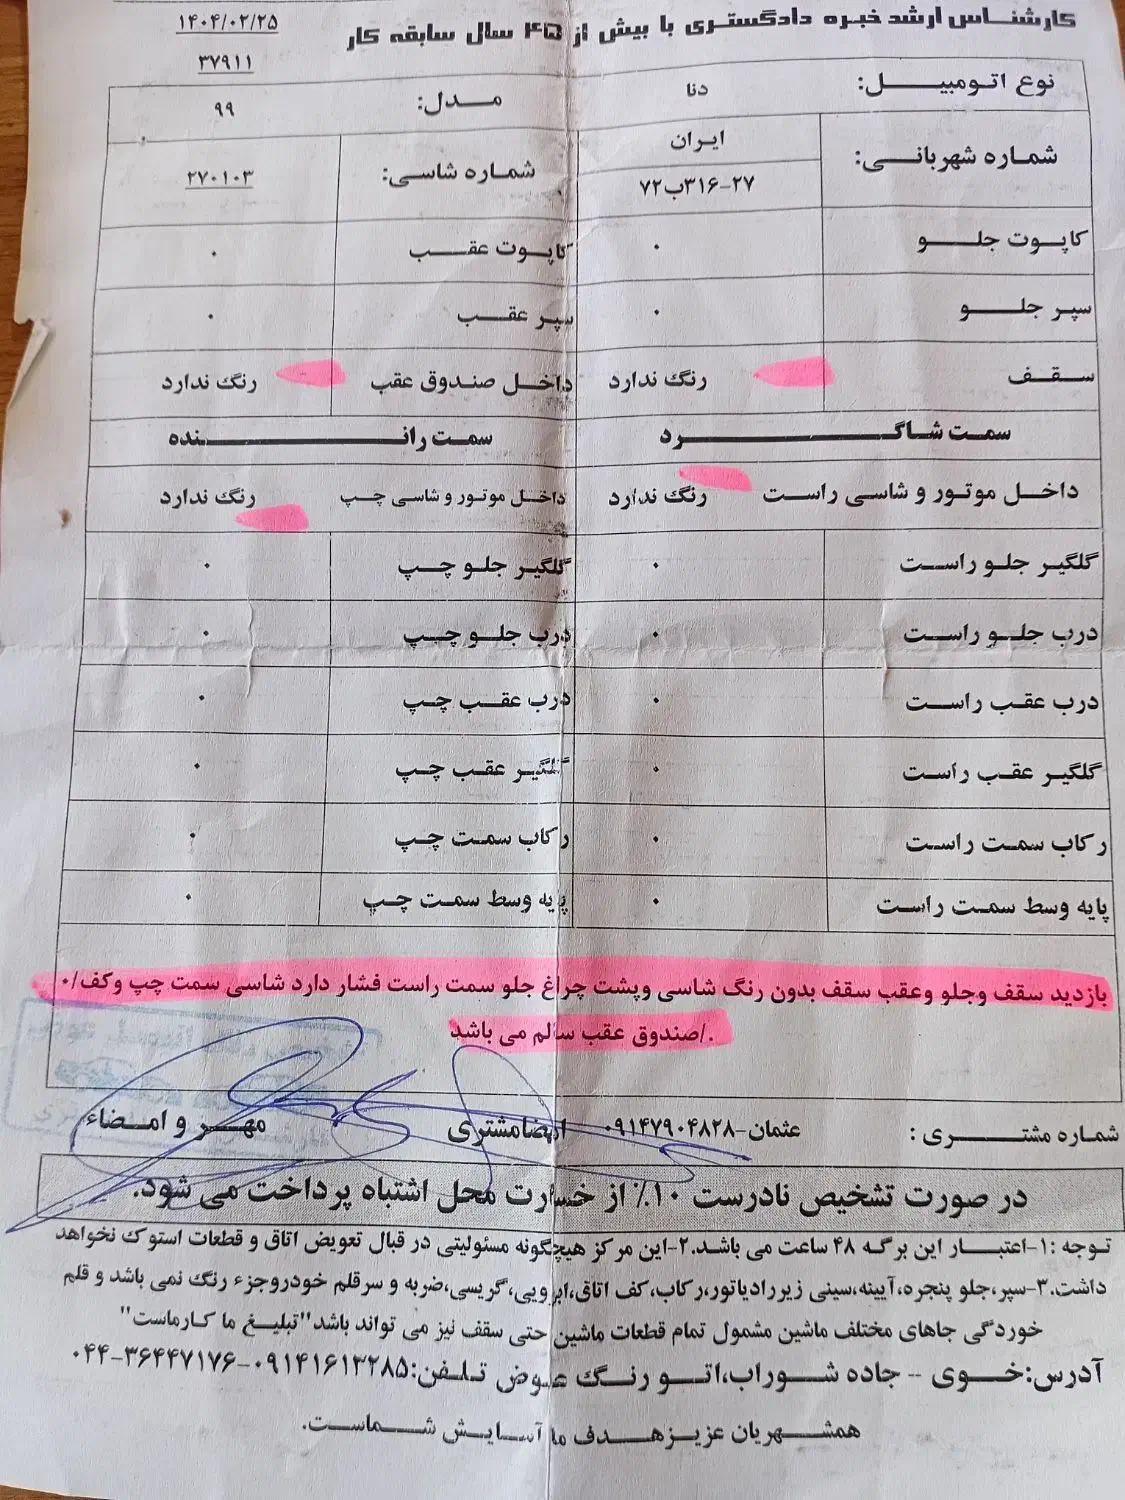 ۱۴۰۴/۰۲/۲۵
کارشناس ارشد خبره دادگستری با بیش از ۴۵ سال سابقه کار
۳۷۹۱۱
نوع اتومبیل: دنا مدل: ۹۹
شماره شهربانی: ایران شماره شاسی: ۲۷۰۱۰۳
۷۲ب۳۱۶-۲۷
کاپوت جلو ۰ کاپوت عقب ۰
سپر جلو ۰ سپر عقب ۰
سقف رنگ ندارد داخل صندوق عقب رنگ ندارد
سمت شاگرد سمت راننده
داخل موتور و شاسی راست رنگ ندارد داخل موتور و شاسی چپ رنگ ندارد
گلگیر جلو راست ۰ گلگیر جلو چپ ۰
درب جلو راست ۰ درب جلو چپ ۰
درب عقب راست ۰ درب عقب چپ ۰
گلگیر عقب راست ۰ گلگیر عقب چپ ۰
رکاب سمت راست ۰ رکاب سمت چپ ۰
پایه وسط سمت راست ۰ پایه وسط سمت چپ ۰
بازدید سقف وجلو وعقب سقف بدون رنگ شاسی وپشت چراغ جلو سمت راست فشار دارد شاسی سمت چپ وکف/۰
./صندوق عقب سالم می باشد
شماره مشتری : عثمان-۰۹۱۴۷۹۰۴۸۲۸ امضامشتری مهر و امضاء
در صورت تشخیص نادرست ۱۰٪ از خسارت محل اشتباه پرداخت می شود.
توجه :۱-اعتبار این برگه ۴۸ ساعت می باشد.۲-این مرکز هیچگونه مسئولیتی در قبال تعویض اتاق و قطعات استوک نخواهد
داشت.۳-سپر،جلو پنجره،آیینه،سینی زیررادیاتور،رکاب،کف اتاق،ابرویی،گریسی،ضربه و سرقلم خودروجزء رنگ نمی باشد و قلم
خوردگی جاهای مختلف ماشین مشمول تمام قطعات ماشین حتی سقف نیز می تواند باشد"تبلیغ ما کارماست"
آدرس:خوی - جاده شوراب،اتو رنگ عوض تلفن:۰۹۱۴۱۶۱۳۲۸۵-۰۴۴-۳۶۴۴۷۱۷۶
همشهریان عزیزهدف ما آسایش شماست.